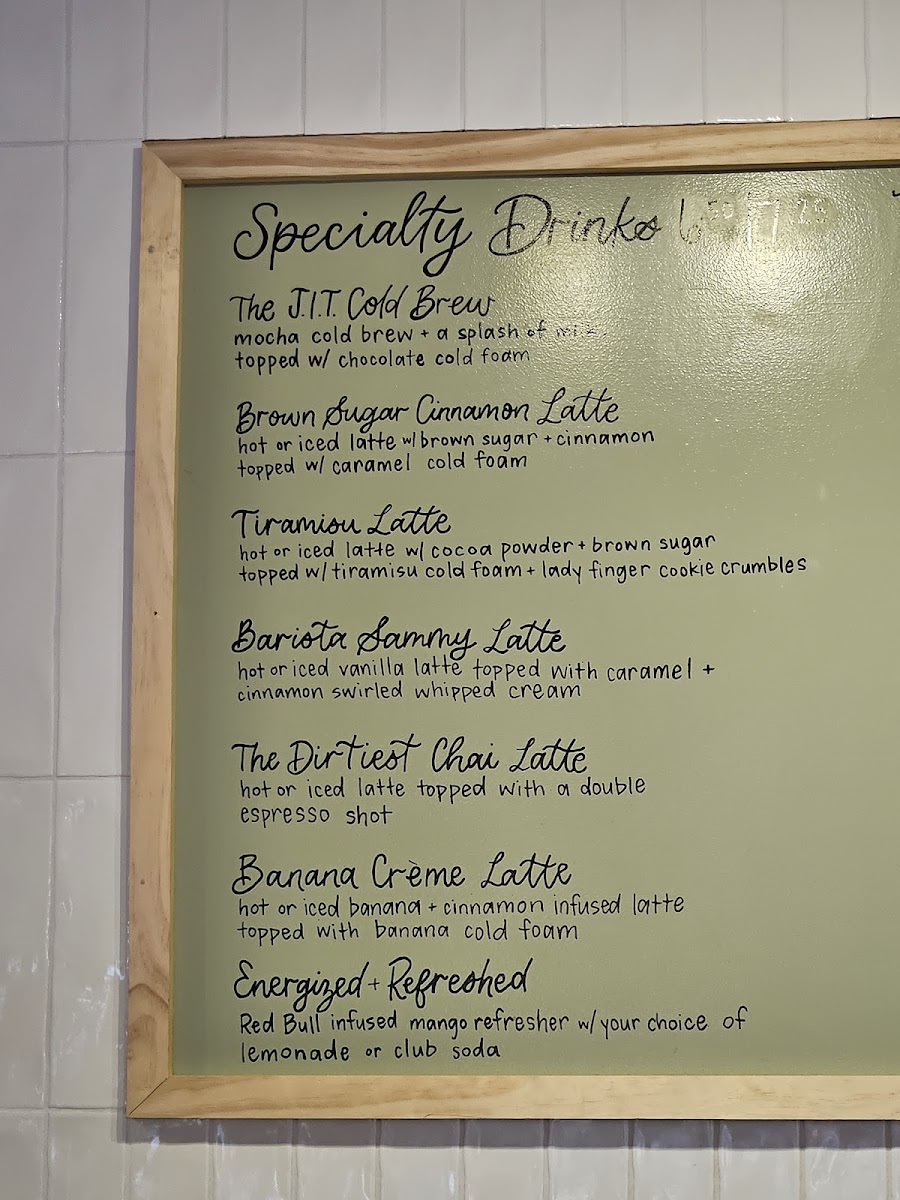 Specialty Drinks 6.50/7.25
The J.I.T. Cold Brew
mocha cold brew + a splash of milk
topped w/ chocolate cold foam
Brown Sugar Cinnamon Latte
hot or iced latte w/ brown sugar + cinnamon
topped w/ caramel cold foam
Tiramisu Latte
hot or iced latte w/ cocoa powder + brown sugar
topped w/ tiramisu cold foam + lady finger cookie crumbles
Barista Sammy Latte
hot or iced vanilla latte topped with caramel +
cinnamon swirled whipped cream
The Dirtiest Chai Latte
hot or iced latte topped with a double
espresso shot
Banana Crème Latte
hot or iced banana + cinnamon infused latte
topped with banana cold foam
Energized + Refreshed
Red Bull infused mango refresher w/ your choice of
lemonade or club soda